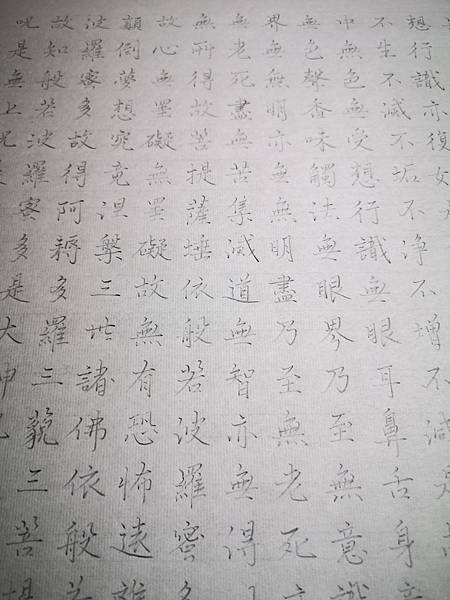 想行識亦復
不生不滅不垢不淨不增不減
中無色無受想行識無眼耳鼻舌身意
無色聲香味觸法無眼界乃至無意識
界無無明亦無無明盡乃至無老死亦
無老死盡無苦集滅道無智亦無得
無所得故菩提薩埵依般若波羅蜜多
故心無罣礙無罣礙故無有恐怖遠離
顛倒夢想究竟涅槃三世諸佛依般若
波羅蜜多故得阿耨多羅三藐三菩提
故知般若波羅蜜多是大神
呪是無上呪